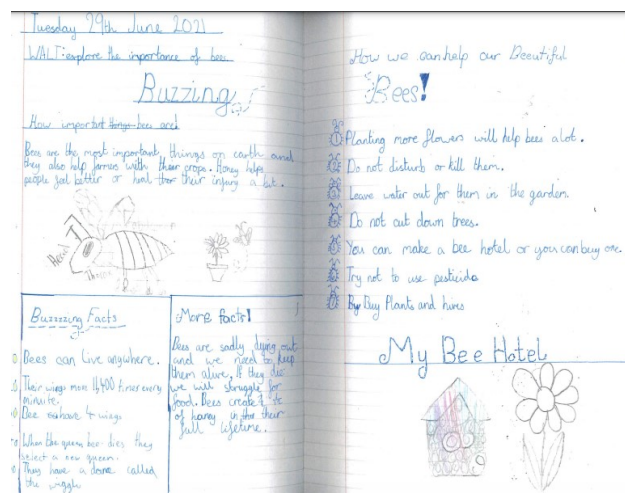 Tuesday 29th June 2021
WALT: explore the importance of bee.
Buzzing
How important things bees are!
Bees are the most important things on earth and
they also help farmes with their crops. Honey helps
people feel better or heal their injury a bit.
Head
Thorax
Buzzzzing Facts
Bees can live anywhere.
Their wings move 11,400 times every
minute.
Bee have 4 wings
When the queen bee dies they
select a new queen.
They have a dance called
the wiggle
More facts!
Bees are sadly dying out
and we need to keep
them alive. If they die
we will struggle for
food. Bees create
of honey in their
full lifetime.
How we can help our Beeutiful
Bees!
1 Planting more flowers will help bees a lot.
2 Do not disturb or kill them.
3 Leave water out for them in the garden.
4 Do not cut down trees.
5 You can make a bee hotel or you can buy one.
6 Try not to use pesticide
7 Buy Plants and hives
My Bee Hotel